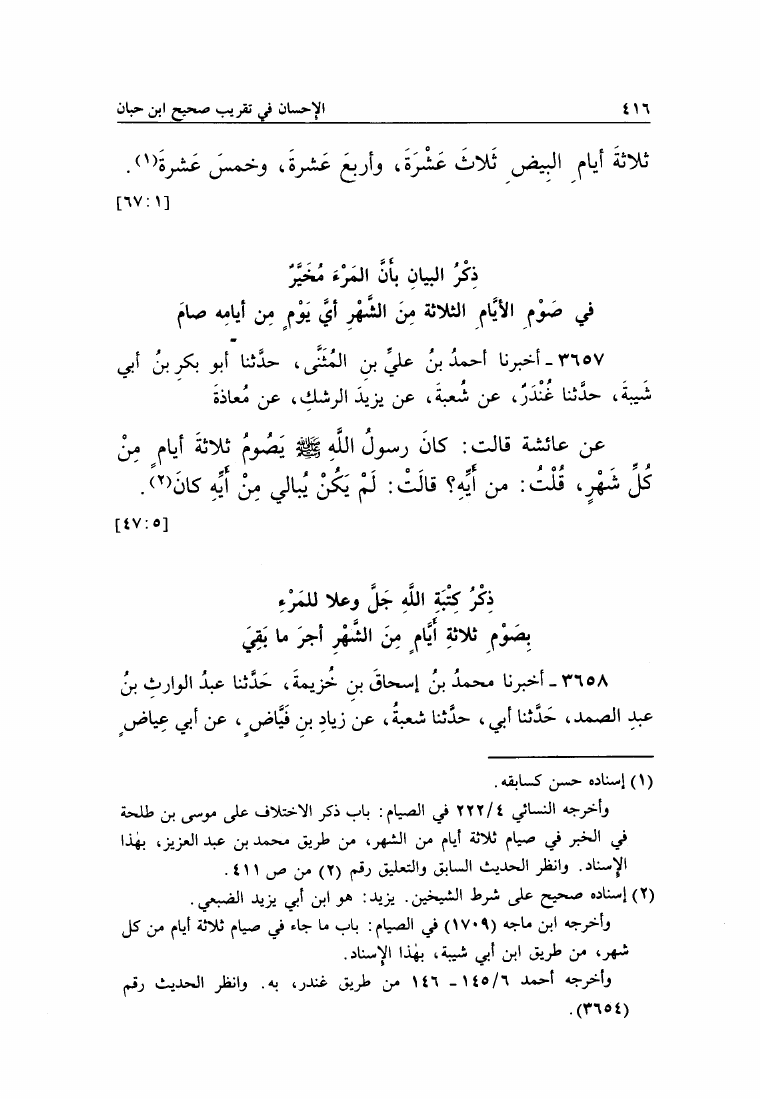 ٤١٦ الإحسان في تقريب صحيح ابن حبان
ثلاثةَ أيامِ البِيضِ ثَلاثَ عَشْرَةَ، وأربعَ عَشرةَ، وخمسَ عَشرةَ(١).
[١:٦٧]
ذِكْرُ البيانِ بأَنَّ المَرْءَ مُخَيَّرٌ
في صَوْمِ الأيَّامِ الثلاثة مِنَ الشَّهْرِ أيَّ يَوْمٍ مِن أيامِه صامَ
٣٦٥٧ ـ أخبرنا أحمدُ بنُ عليِّ بنِ المُثَنَّى، حدَّثنا أبو بكرِ بنُ أبي
شَيبةَ، حدَّثنا غُنْدَرٌ، عن شُعبةَ، عن يزيدَ الرشكِ، عن مُعاذةَ
عن عائشة قالت: كانَ رسولُ اللَّهِ ﷺ يَصُومُ ثلاثَةَ أيامٍ مِنْ
كُلِّ شَهْرٍ، قُلْتُ: من أَيِّهِ؟ قالَتْ: لَمْ يَكُنْ يُبالي مِنْ أَيِّهِ كانَ(٢).
[٥:٤٧]
ذِكْرُ كِتْبَةِ اللَّهِ جَلَّ وعلا للمَرْءِ
بِصَوْمِ ثلاثةِ أَيَّامٍ مِنَ الشَّهْرِ أجرَ ما بَقِيَ
٣٦٥٨ ـ أخبرنا محمدُ بنُ إسحاقَ بنِ خُزيمةَ، حَدَّثنا عبدُ الوارثِ بنُ
عبدِ الصمد، حَدَّثنا أبي، حدَّثنا شعبةُ، عن زيادِ بنِ فَيَّاضٍ، عن أبي عِياضٍ
(١) إسناده حسن كسابقه.
وأخرجه النسائي ٢٢٢/٤ في الصيام: باب ذكر الاختلاف على موسى بن طلحة
في الخبر في صيام ثلاثة أيام من الشهر، من طريق محمد بن عبد العزيز، بهٰذا
الإسناد. وانظر الحديث السابق والتعليق رقم (٢) من ص ٤١١.
(٢) إسناده صحيح على شرط الشيخين. يزيد: هو ابن أبي يزيد الضبعي.
وأخرجه ابن ماجه (١٧٠٩) في الصيام: باب ما جاء في صيام ثلاثة أيام من كل
شهر، من طريق ابن أبي شيبة، بهٰذا الإسناد.
وأخرجه أحمد ١٤٥/٦ ـ ١٤٦ من طريق غندر، به. وانظر الحديث رقم
(٣٦٥٤).